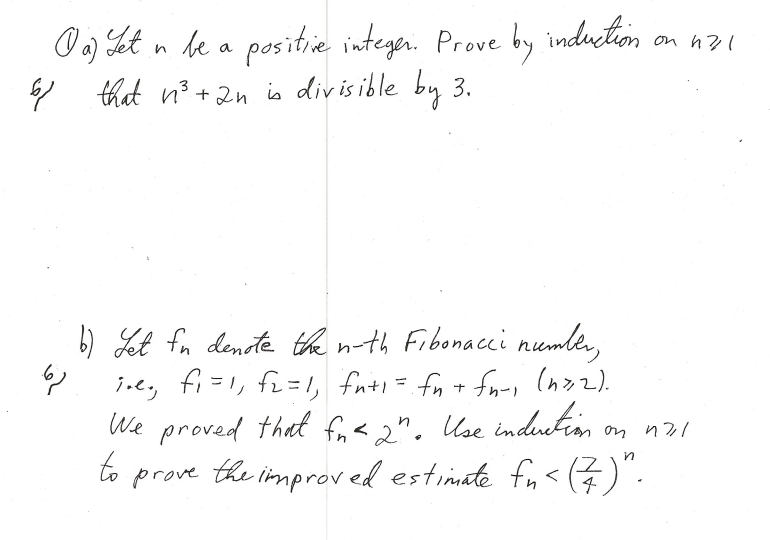 ① a) Let n be a positive integer. Prove by induction on n≥1
6) that n³ + 2n is divisible by 3.
b) Let fn denote the n-th Fibonacci number,
6) i.e., f₁ = 1, f₂ = 1, fn+1 = fn + fn-1 (n≥2).
We proved that fn < 2ⁿ. Use induction on n≥1
to prove the improved estimate fn < (7/4)ⁿ.